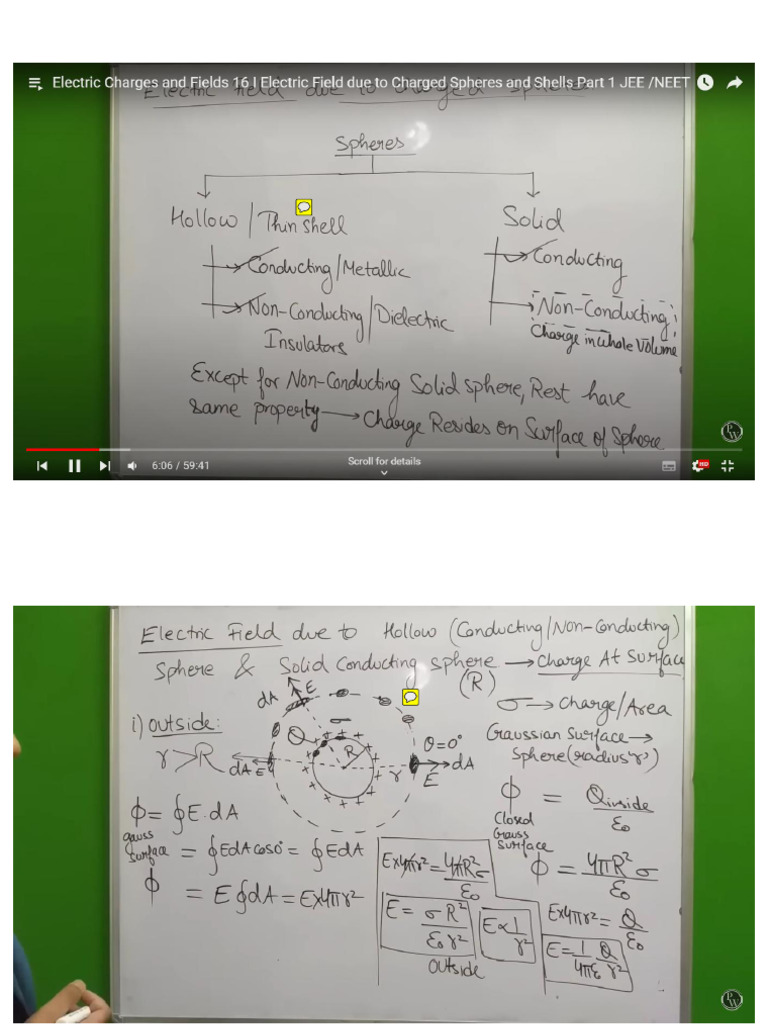 Electric Charges and Fields 16 I Electric Field due to Charged Spheres and Shells Part 1 JEE /NEET
Electric Field due to Charged Spheres
Spheres
Hollow / Thin shell
Solid
Conducting/Metallic
Conducting
Non-Conducting/Dielectric
Insulators
Non-Conducting
Charge in whole Volume
Except for Non-Conducting Solid sphere, Rest have
same property → Charge Resides on Surface of Sphere
6:06 / 59:41
Scroll for details
PW
Electric Field due to Hollow (Conducting/Non-Conducting)
Sphere & Solid Conducting sphere → Charge At Surface
(R)
σ → Charge/Area
i) outside:
r > R
dA E
Q
σ
R
r
θ=0°
E dA
dA E
Gaussian Surface →
Sphere (radius 'r')
ϕ = Qinside/ε₀
Closed
Gauss
Surface
ϕ = 4πR²σ/ε₀
E×4πr² = Q/ε₀
E = 1/4πε Q/r²
ϕ = ∮E.dA
gauss
surface
= ∮EdAcos0° = ∮EdA
ϕ = E∮dA = E×4πr²
E×4πr² = 4πR²σ/ε₀
E = σR²/ε₀r²
E ∝ 1/r²
outside
PW